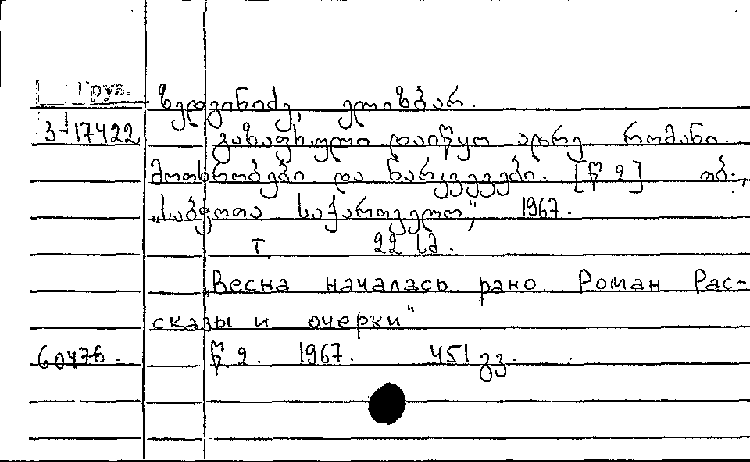 Груз.
ზედგინიძე, ელიზბარ.
3-17422
გაზაფხული დაიწყო ადრე რომანი.
მოთხრობები და ნარკვევები. [წ 2] თბ.,
„საბჭოთა საქართველო", 1967.
Т. 22 სმ.
Весна началась рано Роман Рас-
сказы и очерки"
წ 2. 1967. 451 გვ.